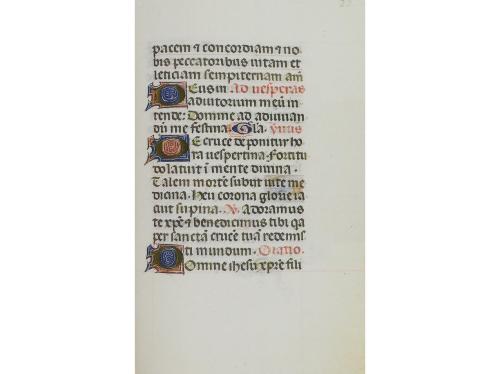 pacem ⁊ concordiam ⁊ no
bis peccatoribus uitam et
leticiam sempiternam am̄
Deus in Ad uesperas
adiutorium meū in
tende: Domine ad adiuuan
dū me festina Gła. ymus
De cruce deponitur ho
ra uespertina. Fortitu
do latuit ī mente diuina.
Talem mortē subijt uite me
dicina. Heu corona glorie ia
cuit supina. ℣. Adoramus
te xp̄e ⁊ benedicimus tibi q̄a
per sanctā crucē tuā redemis
ti mundum. Oratio.
Domine ihesu xp̄e fili